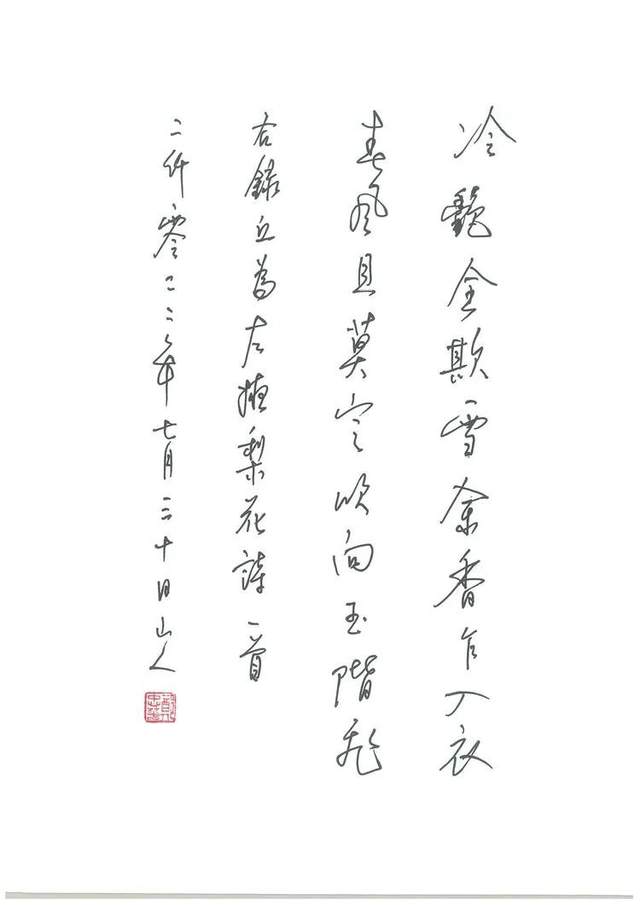 冷艷全欺雪余香乍入衣
春風且莫定吹向玉階飛
右録丘為左掖梨花詩一首
二仟零二二年七月三十日山人